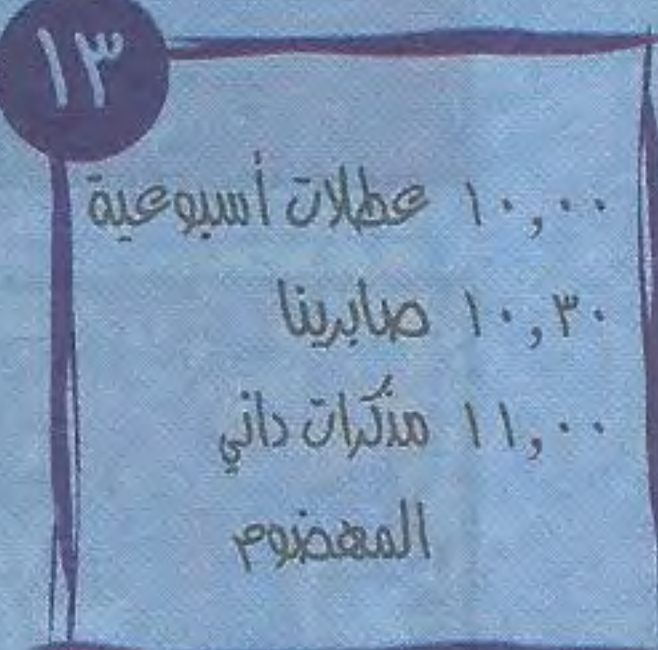 ١٣
١٠,٠٠ عطلات أسبوعية
١٠,٣٠ صابرينا
١١,٠٠ مذكرات داني
المهضوم